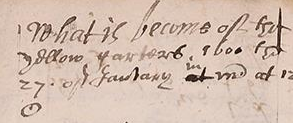 What is become off the
yellow garters. 1600 the
27. off January at in md at 12